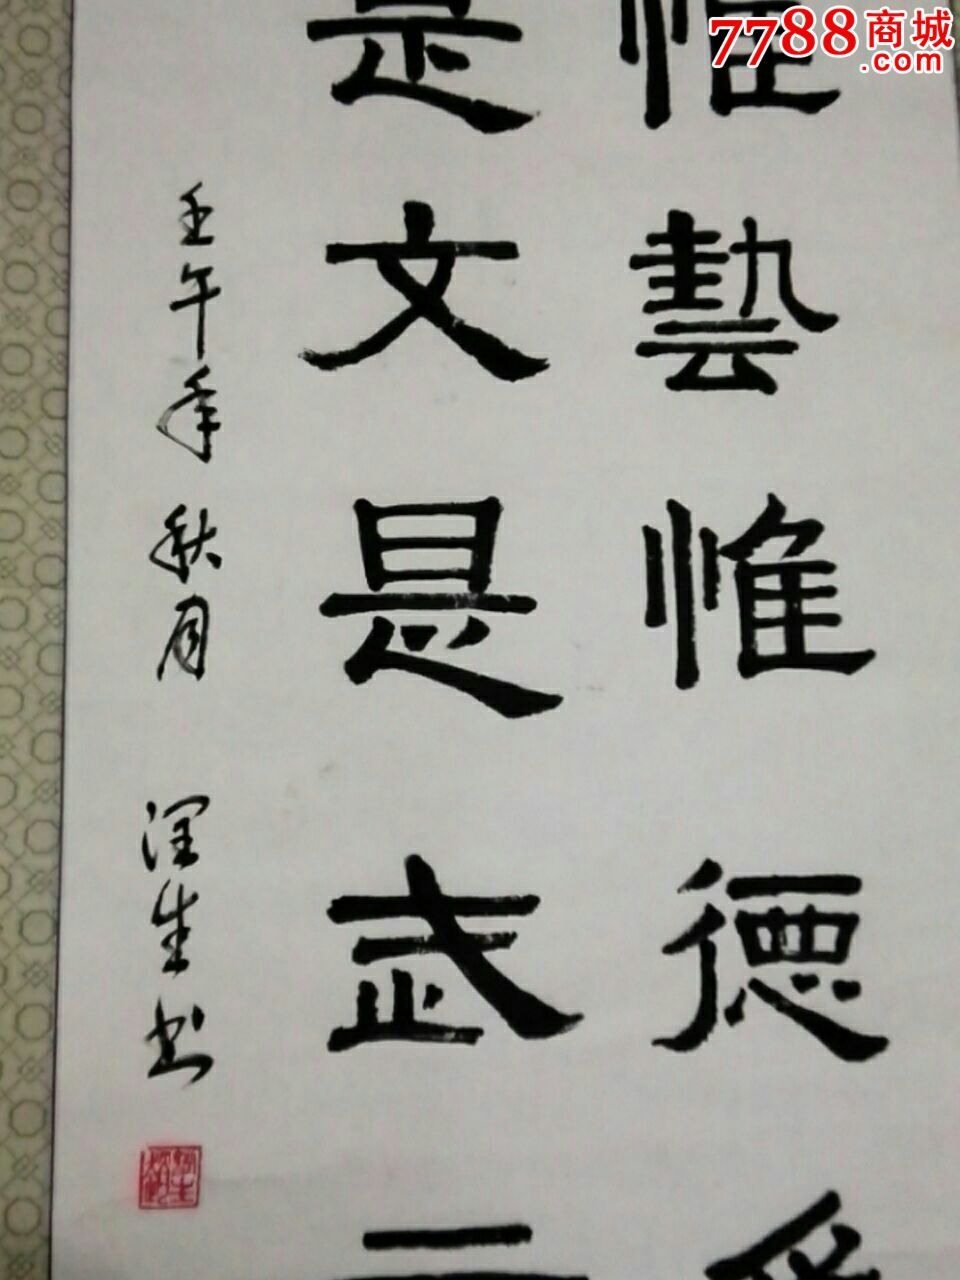 7788商城
.com
惟藝惟德
是文是武
壬午年秋月 深生书